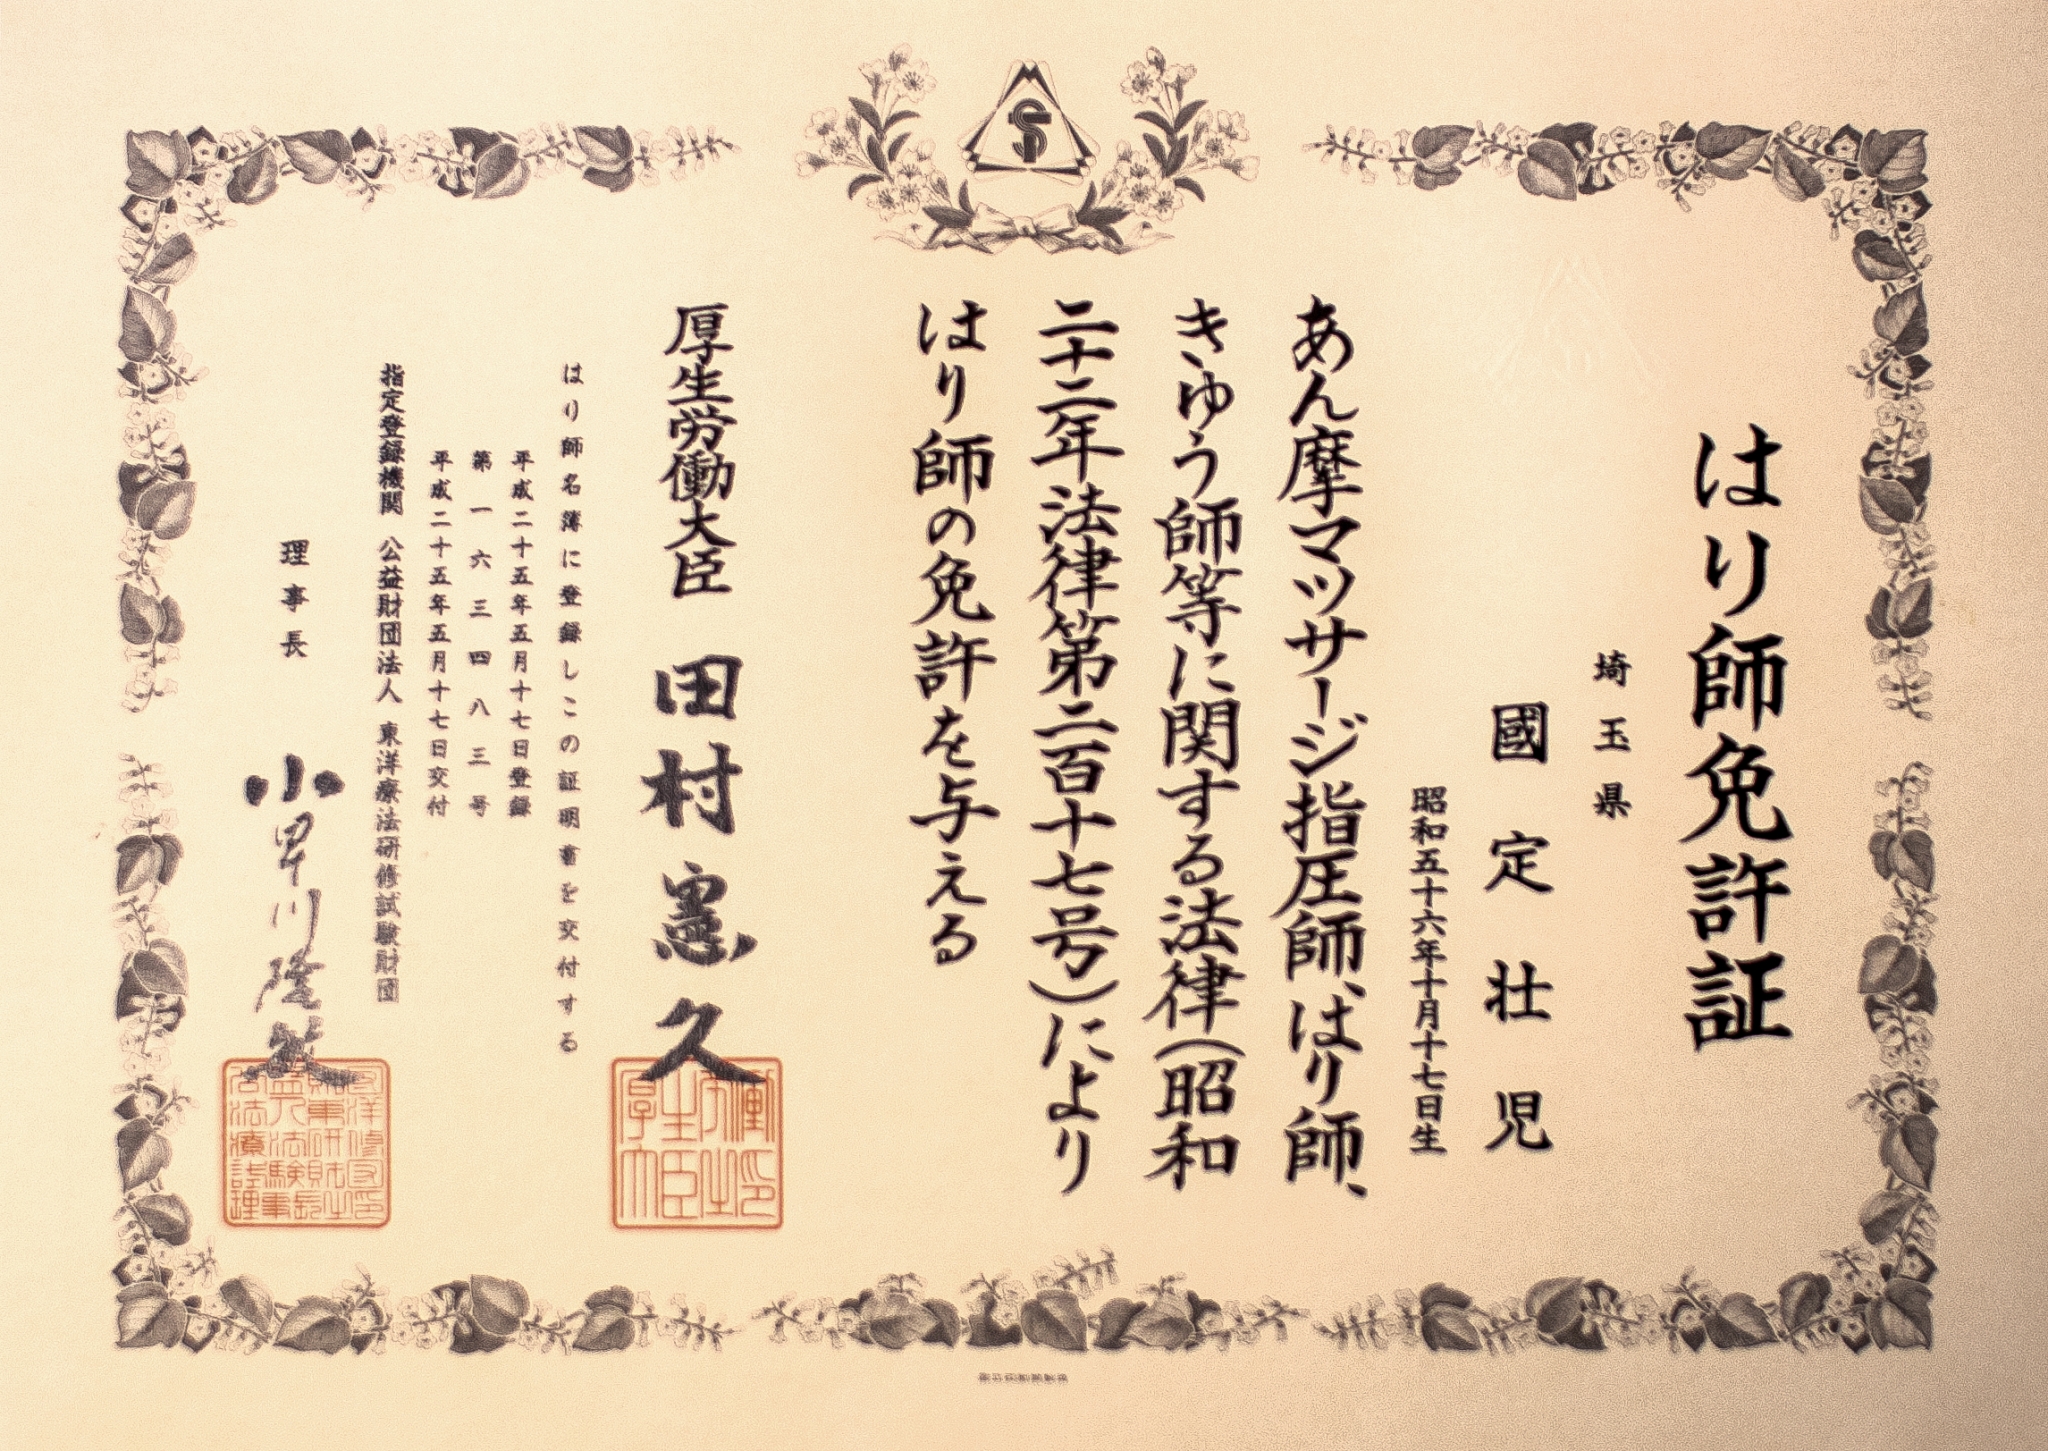 はり師免許証
埼玉県
國定壮児
昭和五十六年十月十七日生
あん摩マツサージ指圧師、はり師、
きゆう師等に関する法律(昭和
二十二年法律第二百十七号)により
はり師の免許を与える
厚生労働大臣 田村憲久
はり師名簿に登録しこの証明書を交付する
平成二十五年五月十七日登録
第一六三四八三号
平成二十五年五月十七日交付
指定登録機関 公益財団法人 東洋療法研修試験財団
理事長 小早川隆敏